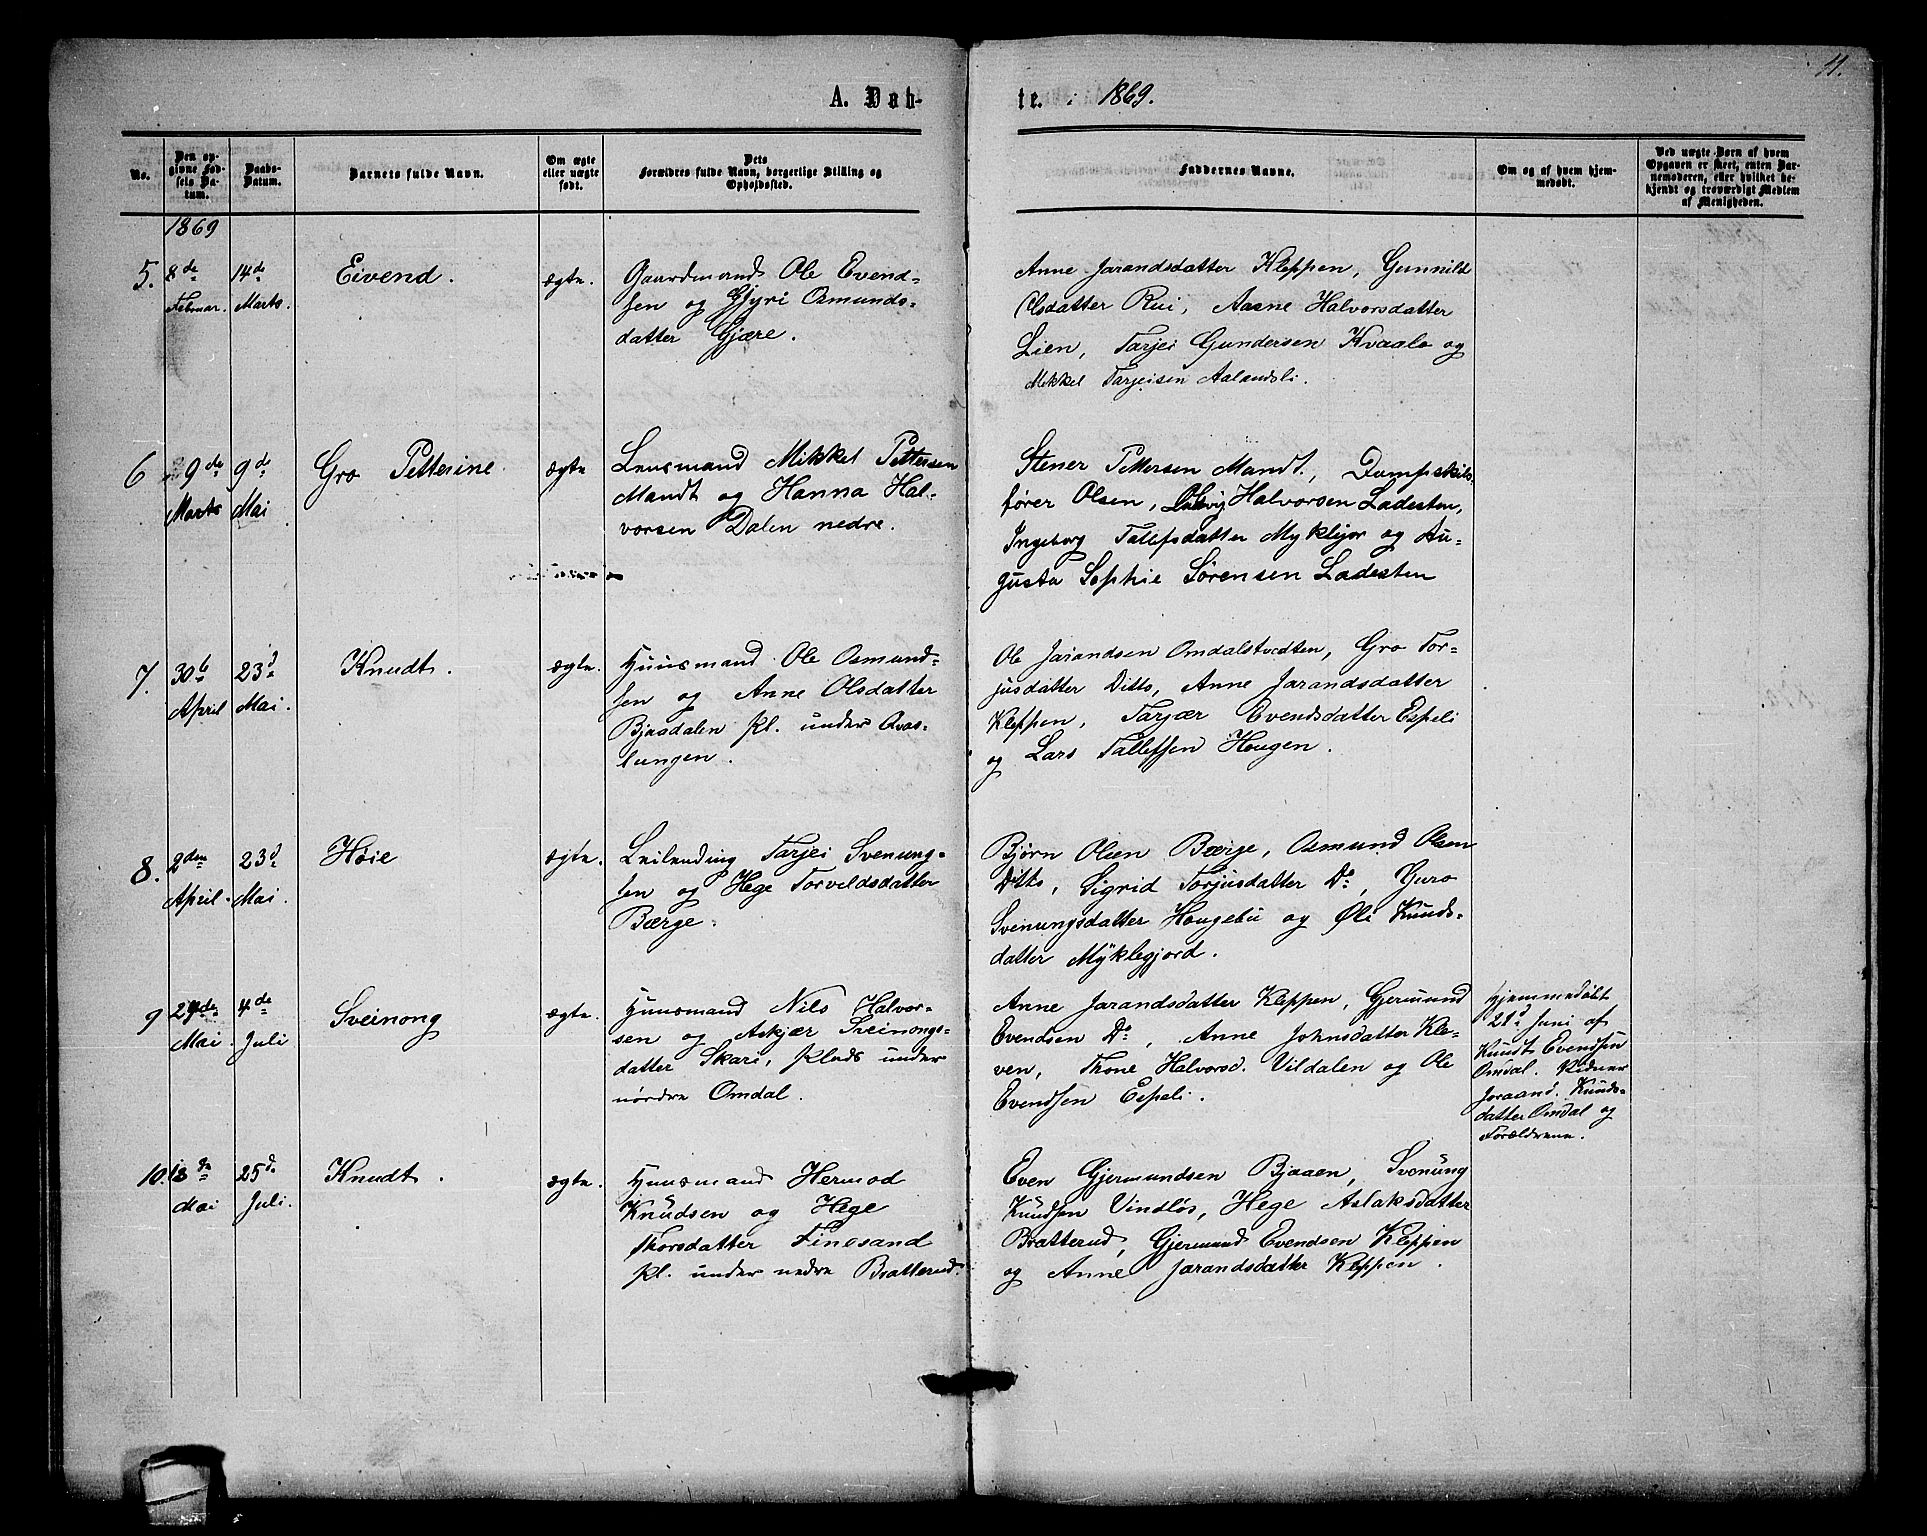 11.
A. Døb-
te. 1869.
No.
Den op-
givne Fød-
sels Da-
tum.
Daabs-
Datum.
Barnets fulde Navn.
Om ægte
eller uægte
født.
Dets
Forældres fulde Navn, borgerlige Stilling og
Opholdssted.
Faddernes Navne.
Om og af hvem hjem-
medøbt.
Ved uægte Børn af hvem
Opgaven er skeet, enten Bar-
nemoderen, eller hvilket be-
kjendt og troværdigt Medlem
af Menigheden.
1869
5.
8de
Februar.
14de
Marts.
Eivend.
ægte.
Gaardmand Ole Evend-
sen og Gjyri Osmunds-
datter Gjære.
Anne Jarandsdatter Kleppen, Gunnild
Olsdatter Rui, Aasne Halvorsdatter
Lien, Tarjei Gundersen Kvaale og
Mikkel Tarjeisen Aalandsli.
6
9de
Marts
9de
Mai
Gro Petterine
ægte
Lensmand Mikkel Pettersen
Mandt og Hanna Hal-
vorsen Dalen nedre.
Stener Pettersen Mandt, Dampskibs
fører Olsen, Halvorsen Ladesten,
Ingeborg Tallefsdatter Myklejor og Au-
gusta Sophie Sørensen Ladesten
7.
30te
April
23d
Mai.
Knudt.
ægte.
Huusmand Ole Osmund-
sen og Anne Olsdatter
Bjaadalen Pl. under Avas-
lungen.
Ole Jarandsen Omdalstvedten, Gro Tor-
jusdatter Ditto, Anne Jarandsdatter
Kleppen, Tarjær Evendsdatter Espeli
og Lars Tallefsen Hougen.
8.
2den
April.
23d
Mai.
Høie
ægte.
Leilending Tarjei Svenung-
sen og Hege Torvildsdatter
Bærge.
Bjørn Olsen Bærge, Osmund Olsen
Ditto, Sigrid Torjusdatter Do, Guro
Svenungsdatter Hougebu og Øli Knuds-
datter Myklegjord.
9
29de
Mai.
4de
Juli
Sveinong
ægte.
Huusmand Nils Halvor-
sen og Askjær Sveinongs-
datter Skari, Plads under
nørdre Omdal.
Anne Jarandsdatter Kleppen, Gjermund
Evendsen Do, Anne Johnsdatter Kle-
ven, Thone Halvorsd. Vildalen og Ole
Evendsen Espeli.
Hjemmedøbt
21d Juni af
Knudt Evendsen
Omdal. Vidner
Joraand Knuds-
datter Omdal og
Forældrene.
10.
18de
Mai
25d
Juli.
Knudt.
ægte.
Huusmand Hermod
Knudsen og Hege
Thorsdatter Finesand
Pl. under nedre Bratterud.
Even Gjermundsen Bjaaen, Svenung
Knudsen Vindløs, Hege Aslaksdatter
Bratterud, Gjermund Evendsen Kleppen
og Anne Jarandsdatter Kleppen.